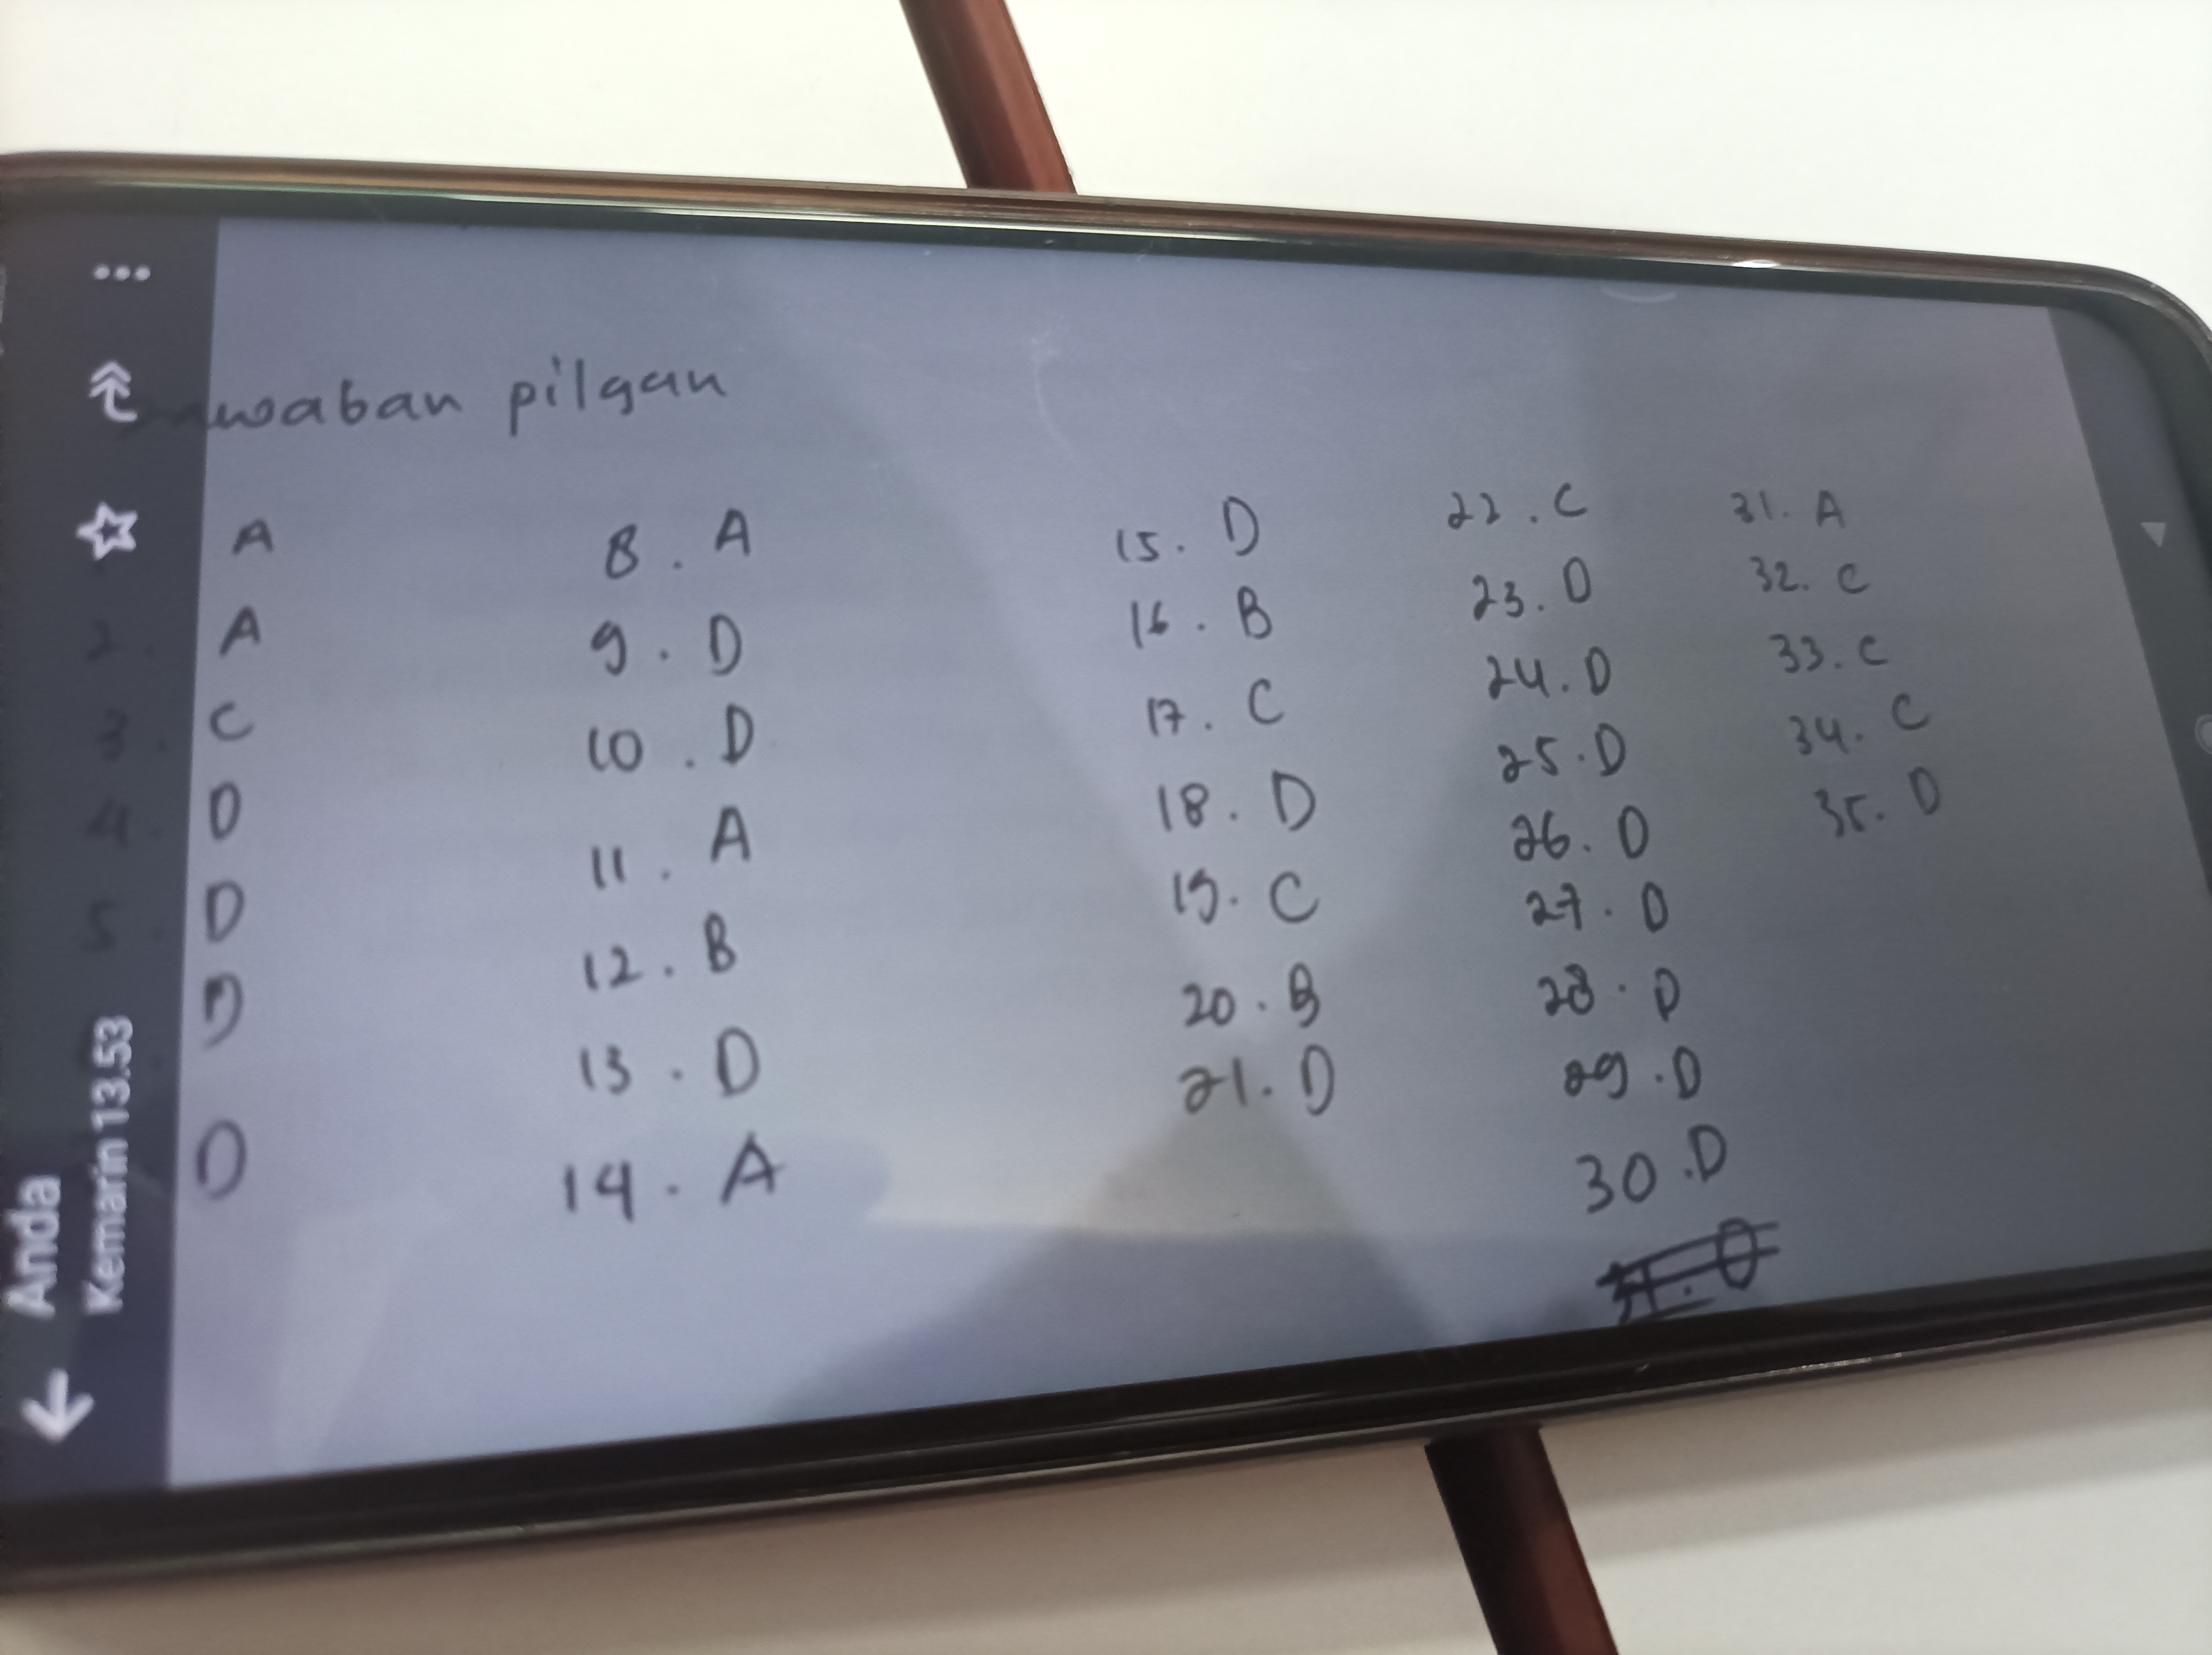 Anda
Kemarin 13.53
Jawaban pilgan
A
2. A
3. C
4. D
5. D
D
D
8. A
9. D
10. D
11. A
12. B
13. D
14. A
15. D
16. B
17. C
18. D
19. C
20. B
21. D
22. C
23. D
24. D
25. D
26. D
27. D
28. D
29. D
30. D
31. A
32. C
33. C
34. C
35. D